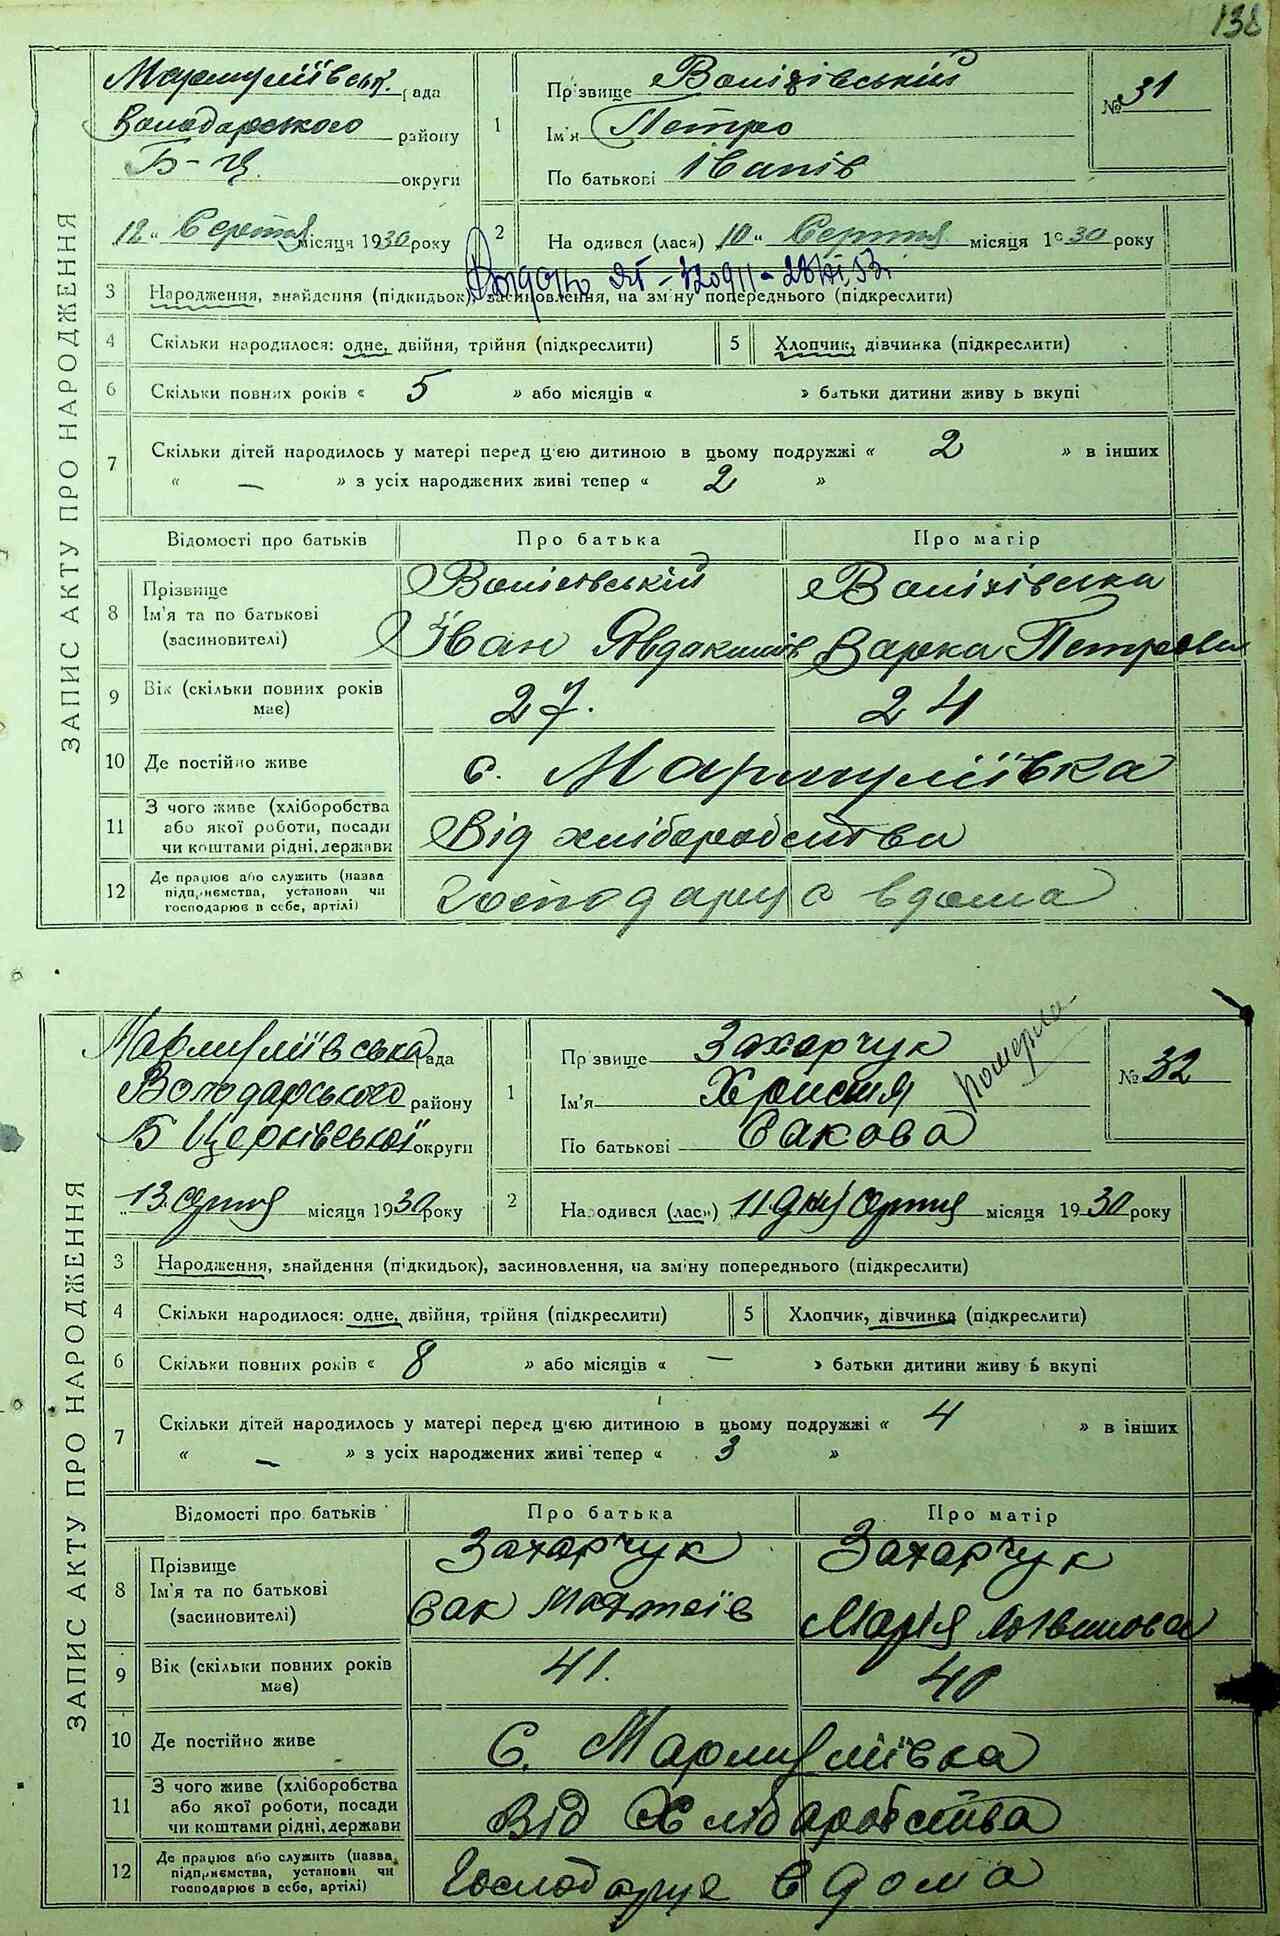 138
ЗАПИС АКТУ ПРО НАРОДЖЕННЯ
Мармуліївськ. рада
Володарського району
Б-Ц. округи
12 " Серпня місяця 1930 року
1 Прізвище
Ім'я Петро
По батькові Іванів
№ 31
2 Народився (лася) 10 " Серпня місяця 1930 року
3 Народження, знайдення (підкидьок), засиновлення, на зміну попереднього (підкреслити)
4 Скільки народилося: одне, двійня, трійня (підкреслити) 5 Хлопчик, дівчинка (підкреслити)
6 Скільки повних років « 5 » або місяців « » батьки дитини живуть вкупі
7 Скільки дітей народилось у матері перед цією дитиною в цьому подружжі « 2 » в інших
« — » з усіх народжених живі тепер « 2 »
Відомості про батьків Про батька Про матір
8 Прізвище
Ім'я та по батькові Іван Варка Петрова
(засиновителі)
9 Вік (скільки повних років має) 27. 24
10 Де постійно живе с. Мармуліївка
11 З чого живе (хліборобства
або якої роботи, посади Від хліборобства
чи коштами рідні, держави
12 Де працює або служить (назва
підприємства, установи чи Господарює вдома
господарює в себе, артілі)
ЗАПИС АКТУ ПРО НАРОДЖЕННЯ
Мармуліївська рада
Володарського району
Б Церківської округи
13 серпня місяця 1930 року
1 Прізвище Захарчук
Ім'я Христя
По батькові Сакова
померла
№ 32
2 Народився (лася) 11 дня серпня місяця 1930 року
3 Народження, знайдення (підкидьок), засиновлення, на зміну попереднього (підкреслити)
4 Скільки народилося: одне, двійня, трійня (підкреслити) 5 Хлопчик, дівчинка (підкреслити)
6 Скільки повних років « 8 » або місяців « — » батьки дитини живуть вкупі
7 Скільки дітей народилось у матері перед цією дитиною в цьому подружжі « 4 » в інших
« — » з усіх народжених живі тепер « 3 »
Відомості про батьків Про батька Про матір
8 Прізвище Захарчук Захарчук
Ім'я та по батькові Сак Матвіїв Марія
(засиновителі)
9 Вік (скільки повних років має) 41. 40
10 Де постійно живе С. Мармуліївка
11 З чого живе (хліборобства
або якої роботи, посади Від Хліборобства
чи коштами рідні, держави
12 Де працює або служить (назва
підприємства, установи чи Господарює вдома
господарює в себе, артілі)